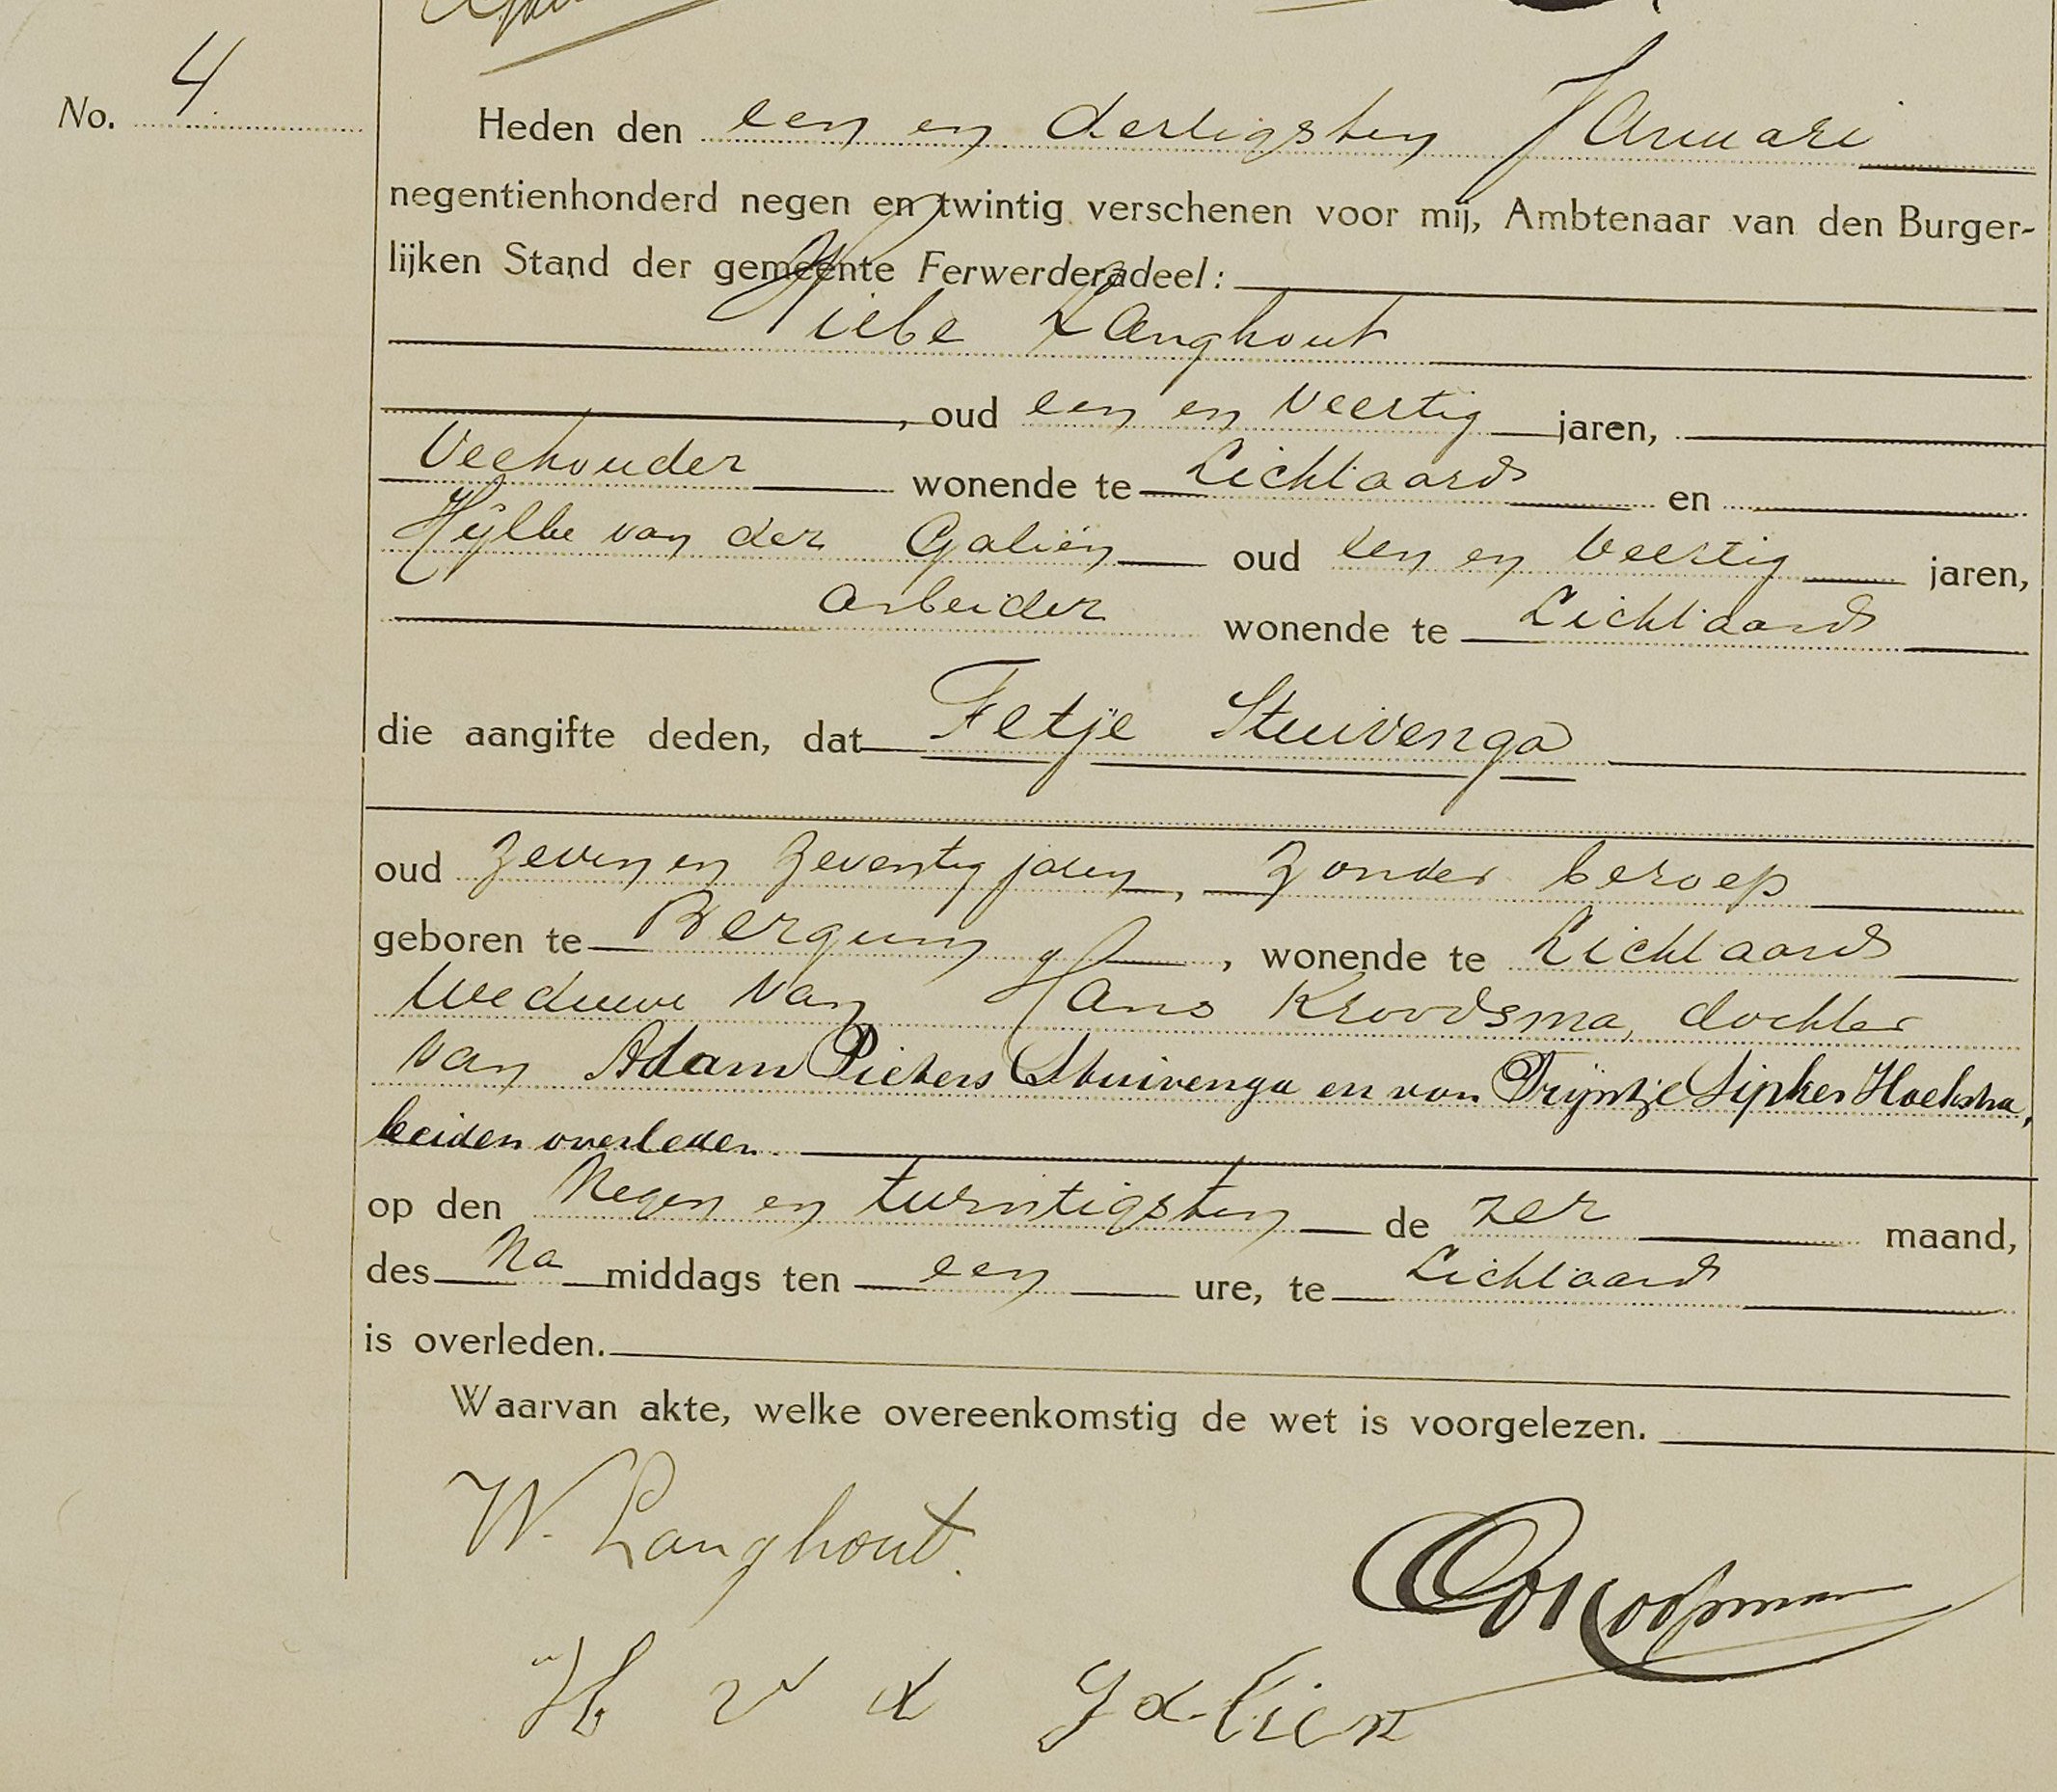 No. 4.
Heden den een en dertigsten Januari
negentienhonderd negen en twintig verschenen voor mij, Ambtenaar van den Burger-
lijken Stand der gemeente Ferwerderadeel:
Wiebe Langhout
, oud een en veertig jaren,
Veehouder wonende te Lichtaard en
Hijlke van der Galiën oud een en veertig jaren,
arbeider wonende te Lichtaard
die aangifte deden, dat Fetje Stuivenga
oud zeven en zeventig jaren, zonder beroep
geboren te Bergum, wonende te Lichtaard
weduwe van Hans Kroodsma, dochter
van Adam Pieters Stuivenga en van Trijntje Sipkes Hoekstra,
beiden overleden.
op den negen en twintigsten de zer maand,
des na middags ten een ure, te Lichtaard
is overleden.
Waarvan akte, welke overeenkomstig de wet is voorgelezen.
W. Langhout.
Koopman
H v d Galien